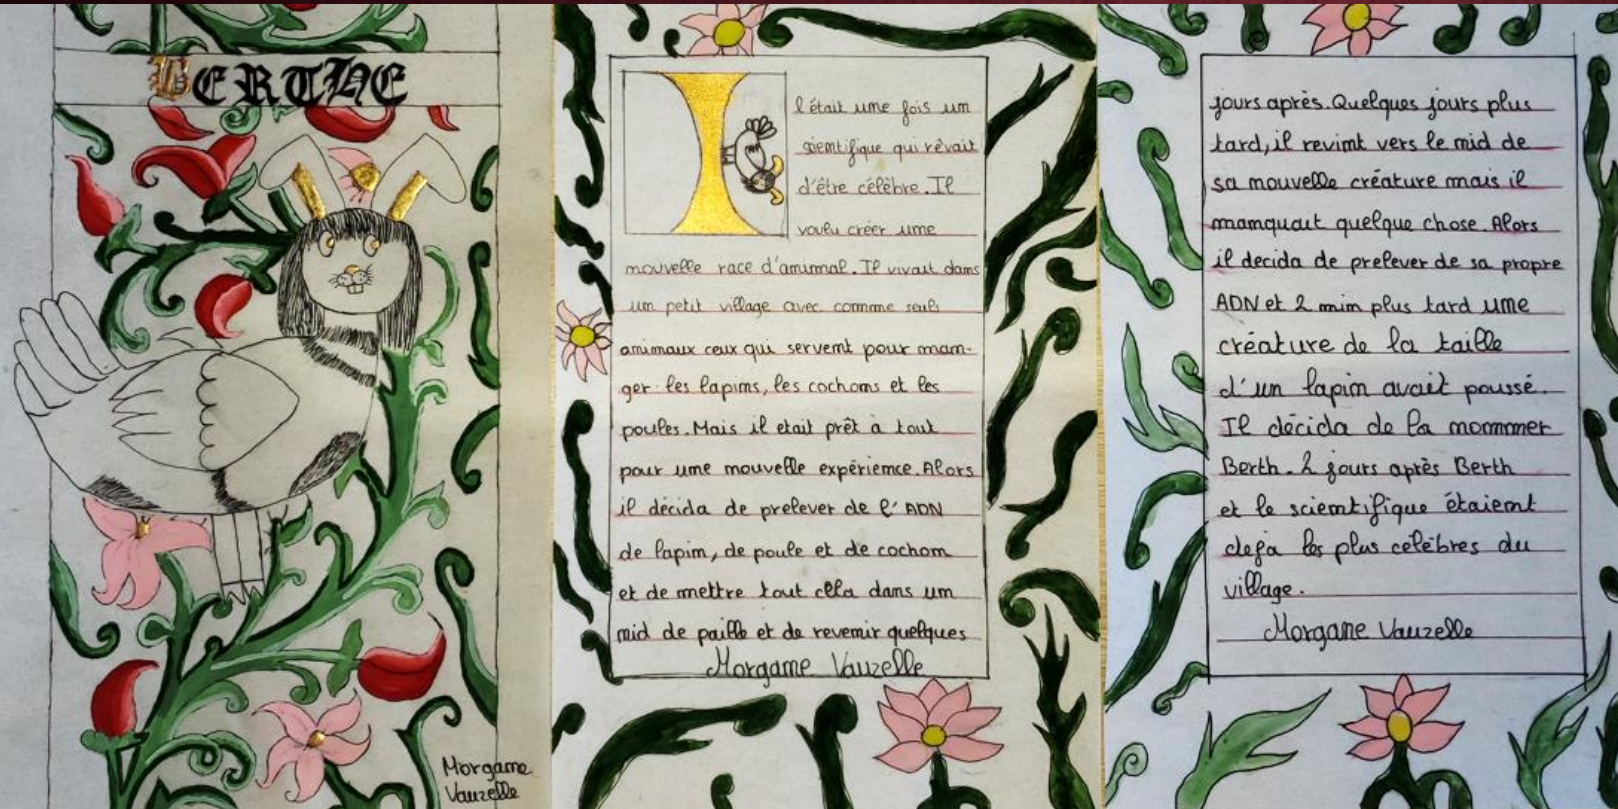 BERTHE
Morgane
Vauzelle
Il était une fois un
scientifique qui rêvait
d'être célèbre. Il
voulu créer une
nouvelle race d'animal. Il vivait dans
un petit village avec comme seuls
animaux ceux qui servent pour man-
ger: les lapins, les cochons et les
poules. Mais il etait prêt à tout
pour une nouvelle expérience. Alors
il décida de prelever de l'ADN
de lapin, de poule et de cochon
et de mettre tout cela dans un
nid de paille et de revenir quelques
Morgane Vauzelle
jours après. Quelques jours plus
tard, il revint vers le nid de
sa nouvelle créature mais il
manquait quelque chose. Alors
il decida de prelever de sa propre
ADN et 2 min plus tard une
créature de la taille
d'un lapin avait poussé.
Il décida de la nommer
Berth. 2 jours après Berth
et le scientifique étaient
deja les plus célèbres du
village.
Morgane Vauzelle